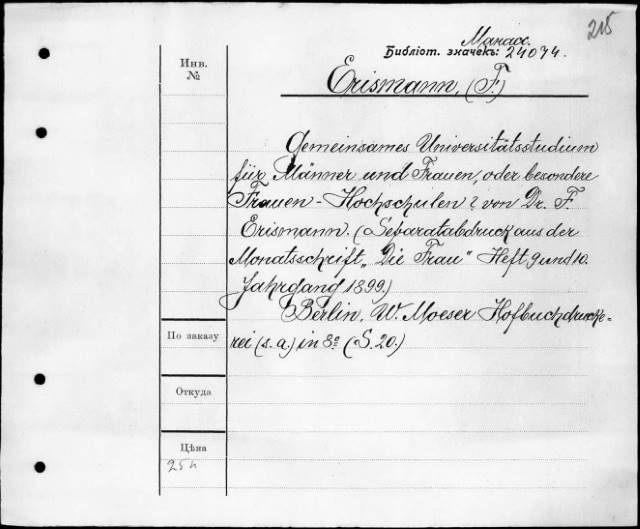 215
Манасс.
Библіот. значекъ: 24074.
Инв.
№
Erismann, (F.)
Gemeinsames Universitätsstudium
für Männer und Frauen, oder besondere
Frauen-Hochschulen? von Dr. F.
Erismann. (Separatabdruck aus der
Monatsschrift „Die Frau“ Heft 9 und 10.
Jahrgang 1899.)
Berlin. W. Moeser Hofbuchdrucke-
rei (s. a.) in 8º (S. 20.)
По заказу
Откуда
Цѣна
25 к